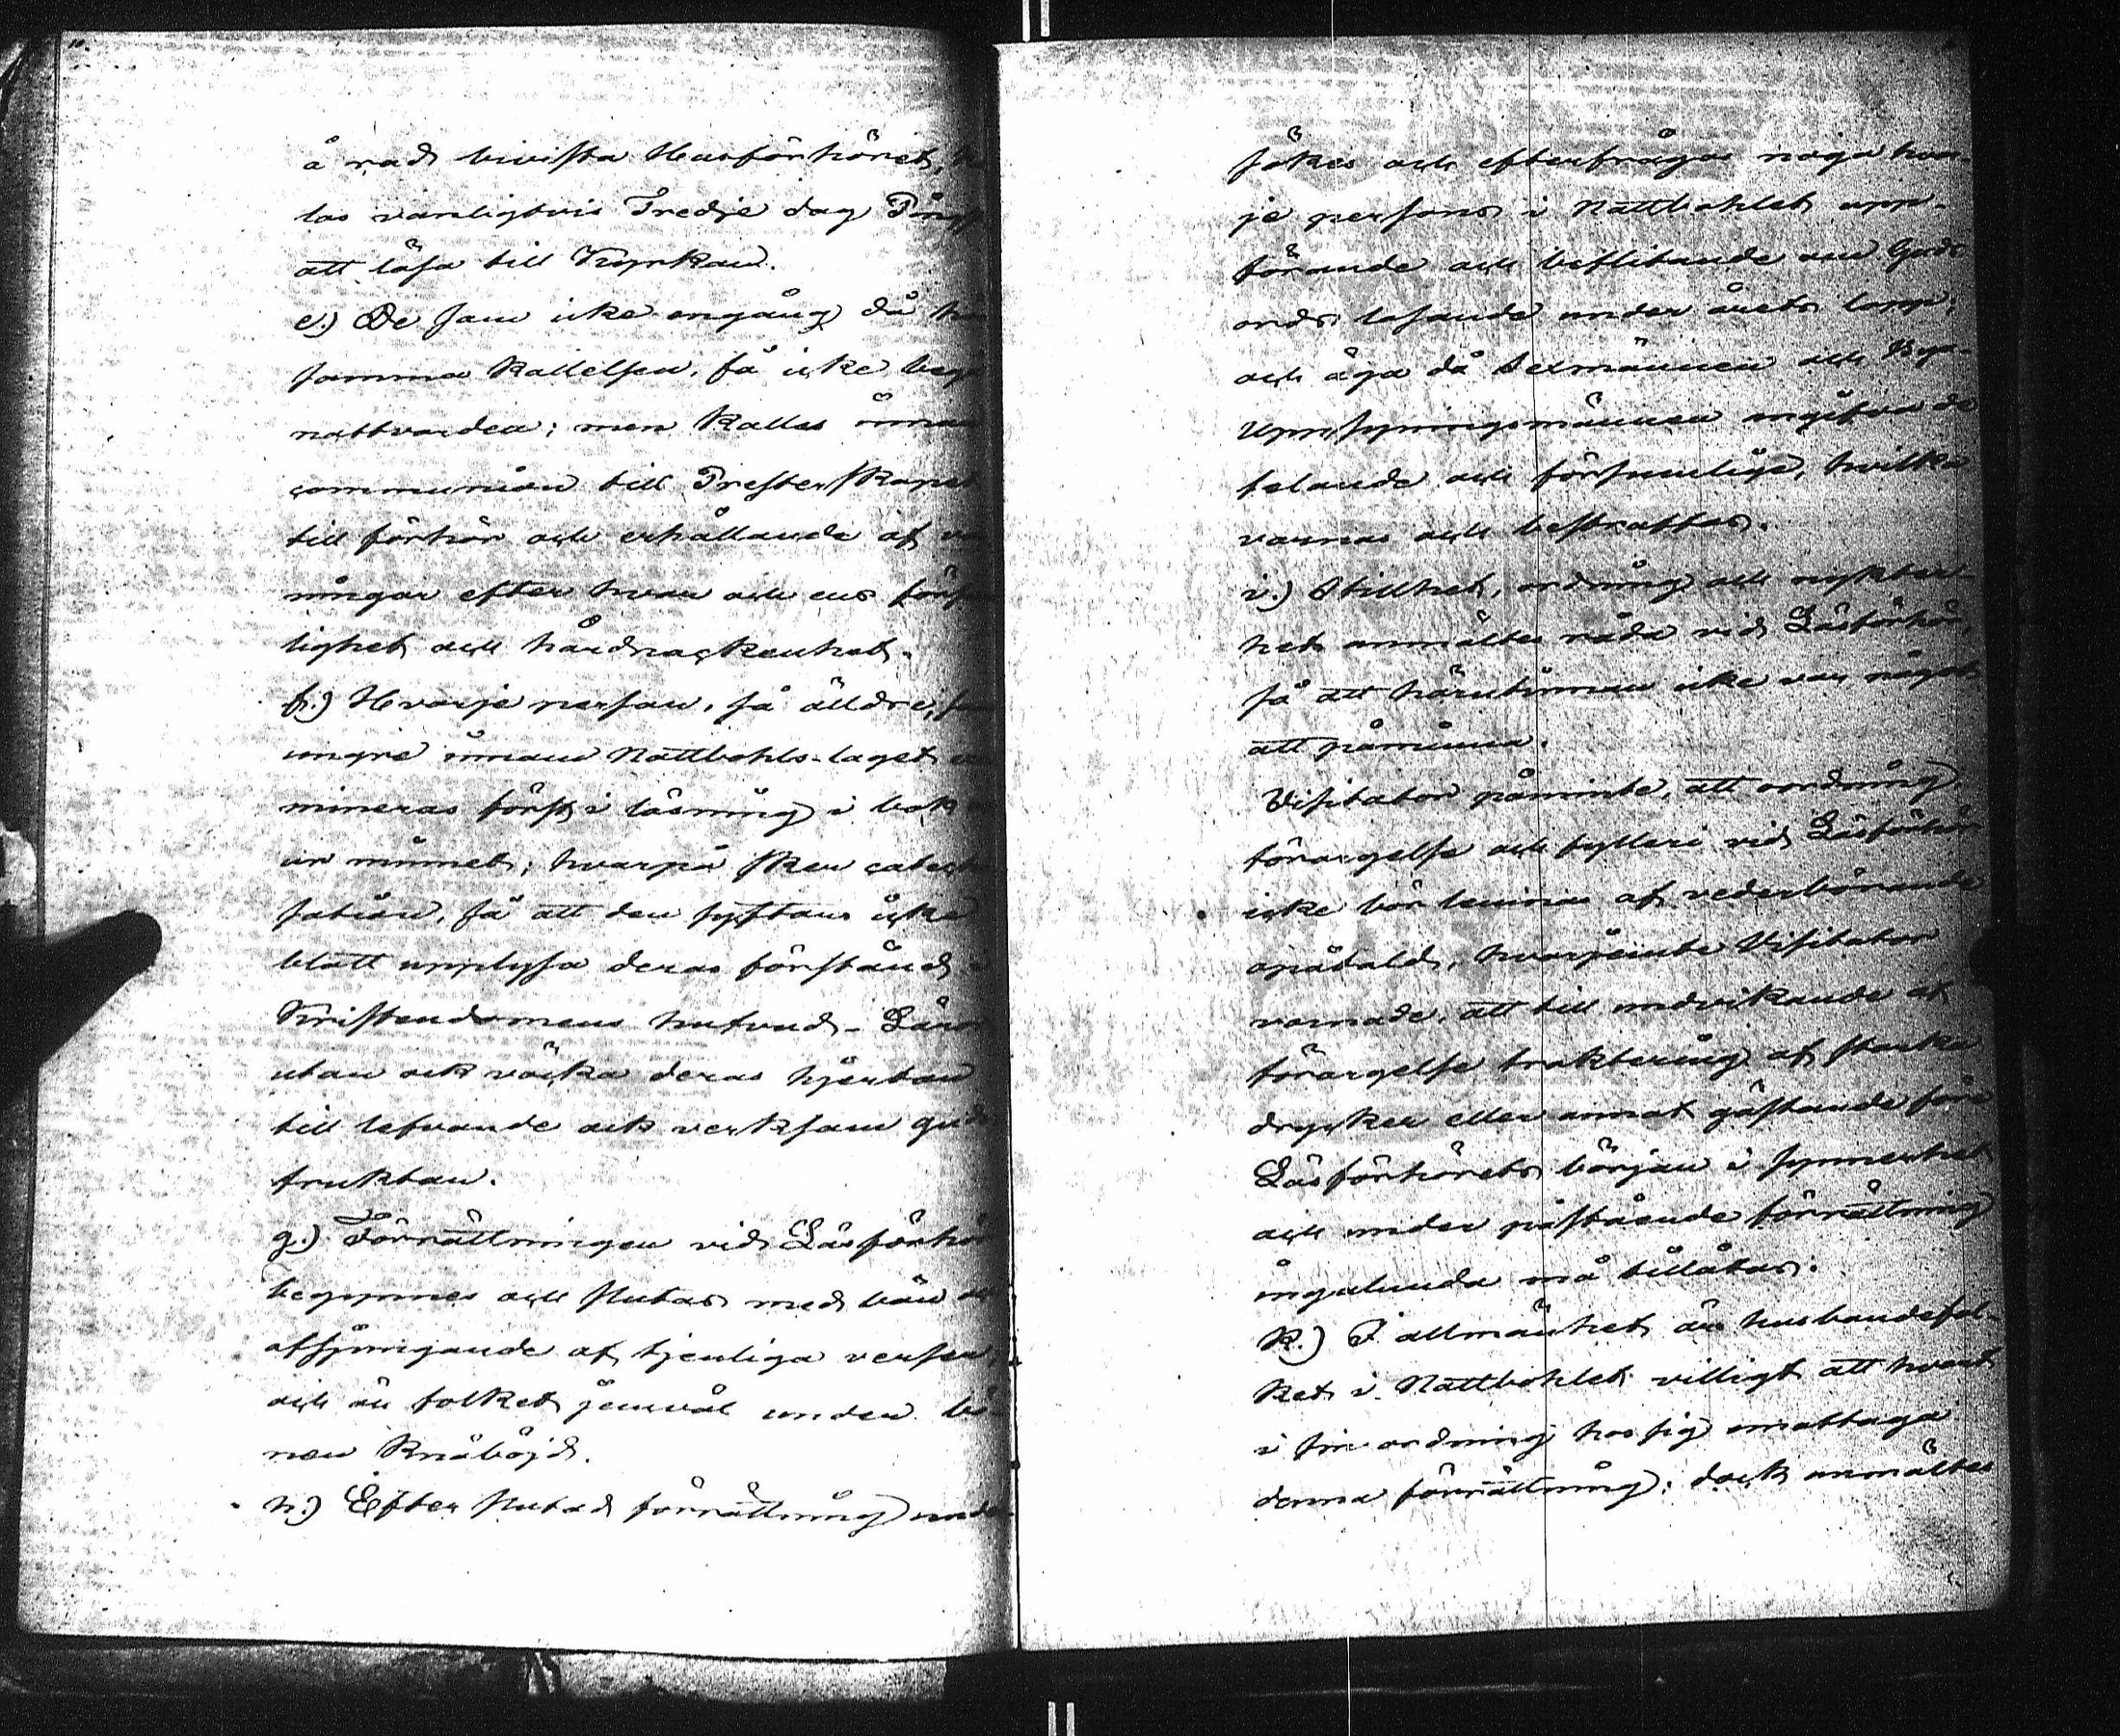 10.
å rad bevista Husförhöret,
las vanligtvis Tredje dag Pingst
att läsa till Kyrkan.
e.) De som icke engång då hör
samma kallelsen, få icke begå
nattvarden; men kallas innan
communion till Presterskapet
till förhör och erhållande af var
ningar efter hvar och ens försum
lighet och hårdnackenhet.
f.) Hvarje person, så äldre, som
yngre innom Nattbohls-laget exa
mineras först i läsning i bok och
ur minnet; hvarpå sker cateche
sation, så att den syftar icke
blott upplysa deras förstånd i
Kristendomens hufvud-Läror
utan ock väcka deras hjertan
till lefvande och verksam guds
fruktan.
g.) Förrättningen vid Läsförhör
begynnes och slutas med bön och
afsjungande af tjenliga verser,
och är folket jemväl under bö-
nen knäböjd.
h.) Efter slutad förrättning under-
sökes och efterfrågas noga hvar-
je persons i Nattbohlet upp-
förande och beflitande om Guds
ords läsande under årets lopp;
och äga då Sexmännen och Bya-
Uppsyningsmännen angifva de
felande och försumlige, hvilka
varnas och bestraffas.
i.) Stillhet, ordning och nykter-
het anmältes råda vid Läsförhör,
så att härutinnan icke var något
att påminna.
Visitator påminte, att oordning
förargelse och fylleri vid Läsförhör
icke bör lemnas af vederbörande
opåtald, hvarjemte Visitator
varnade, att till undvikande af
förargelse traktering af starka
drycker eller annat gästande före
Läsförhörets början i synnerhet
och under påstående förrättning
ingalunda må tillåtas.
k.) I allmänhet är husbondefol-
ket i Nattbohlet villigt att hvart
i sin ordning hos sig emottaga
denna förrättning; dock anmältes